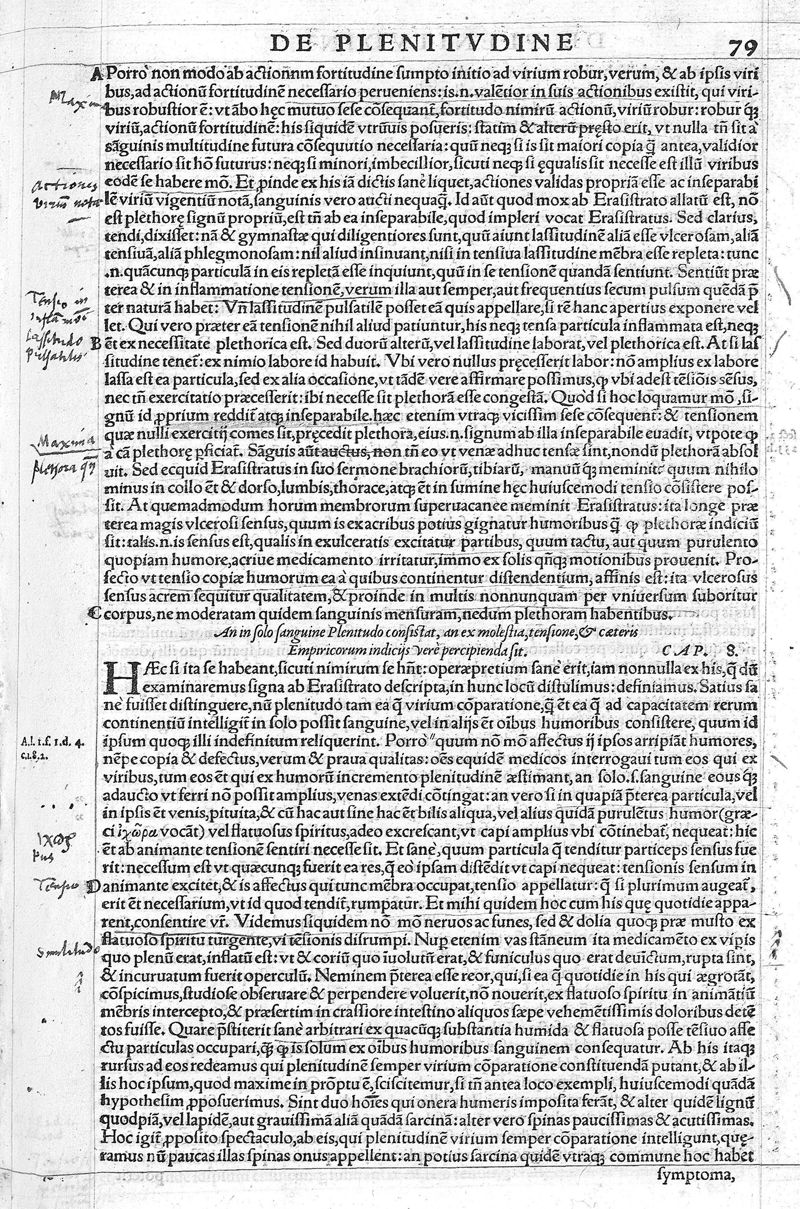 DE PLENITVDINE 79
A Porrò non modo ab actionnm fortitudine sumpto initio ad virium robur, verum, & ab ipsis viri
bus, ad actionū fortitudinē necessario perueniens: is.n.valētior in suis actionibus existit, qui viri-
Maxim
bus robustior ē: vt ābo hęc mutuo sese cōsequant, fortitudo nimirū actionū, viriū robur: robur q́;
viriū, actionū fortitudinē: his siquidē vtruuis posueris: statim & alterū pręsto erit, vt nulla tñ sit à
sāguinis multitudine futura cōsequutio necessaria: quū neq; si is sit maiori copia q̄ antea, validior
necessario sit hō futurus: neq; si minori, imbecillior, sicuti neq; si ęqualis sit necesse est illū viribus
Actiones
virium nota
eodē se habere mō. Et ꝓinde ex his iā dictis sanè liquet, actiones validas propriā esse ac inseparabi
lē viriū vigentiū notā, sanguinis vero aucti nequaq̄. Id aūt quod mox ab Erasistrato allatū est, nō
est plethorę signū propriū, est tñ ab ea inseparabile, quod impleri vocat Erasistratus. Sed clarius,
tendi, dixisset: nā & gymnastæ qui diligentiores sunt, quū aiunt lassitudinē aliā esse vlcerosam, aliā
tensiuā, aliā phlegmonosam: nil aliud insinuant, nisi in tensiua lassitudine mēbra esse repleta: tunc
.n. quācunq; particulā in eis repletā esse inquiunt, quū in se tensionē quandā sentiunt. Sentiūt præ
Tensio in
inflamōe
terea & in inflammatione tensionē, verum illa aut semper, aut frequentius secum pulsum quēdā p̄
ter naturā habet: Vñ lassitudinē pulsatilē posset eā quis appellare, si rē hanc apertius exponere vel
Lassitudo
pulsatilis
let. Qui vero præter eā tensionē nihil aliud patiuntur, his neq; tensa particula inflammata est, neq;
B ēt ex necessitate plethorica est. Sed duorū alterū, vel lassitudine laborat, vel plethorica est. At si las
situdine tenet: ex nimio labore id habuit. Vbi vero nullus pręcesserit labor: nō amplius ex labore
lassa est ea particula, sed ex alia occasione, vt tādē vere affirmare possimus, ꝙ vbi adest tēsiōis sēsus,
nec tñ exercitatio præcesserit: ibi necesse sit plethorā esse congestā. Quod si hoc loquamur mō, si-
gnū id ꝓprium reddit atq; inseparabile. hæc etenim vtraq; vicissim sese cōsequent: & tensionem
Maxima
plethora qñ
quæ nulli exercitij comes sit, pręcedit plethora, eius.n. signum ab illa inseparabile euadit, vtpote ꝙ
a cā plethorę ꝓficiat. Sāguis aūt auctus, non tñ eo vt venæ adhuc tensæ sint, nondū plethorā absol
uit. Sed ecquid Erasistratus in suo sermone brachiorū, tibiarū, manuū q́; meminit? quum nihilo
minus in collo ēt & dorso, lumbis, thorace, atq; ēt in sumine hęc huiuscemodi tensio cōsistere pos-
sit. At quemadmodum horum membrorum superuacanee meminit Erasistratus: ita longe præ
terea magis vlcerosi sensus, quum is ex acribus potius gignatur humoribus q̄ ꝙ plethoræ indiciū
sit: talis.n. is sensus est, qualis in exulceratis excitatur partibus, quum tactu, aut quum purulento
quopiam humore, acriue medicamento irritatur, immo ex solis qñq; motionibus prouenit. Pro-
fecto vt tensio copiæ humorum ea à quibus continentur distendentium, affinis est: ita vlcerosus
sensus acrem sequitur qualitatem, & proinde in multis nonnunquam per vniuersum suboritur
C corpus, ne moderatam quidem sanguinis mensuram, nedum plethoram habentibus.
An in solo sanguine Plenitudo consistat, an ex molestia, tensione, & cæteris
Empiricorum indicijs verè percipienda sit. CAP. 8.
HÆc si ita se habeant, sicuti nimirum se hñt: operæpretium sanè erit, iam nonnulla ex his, q̄ dū
examinaremus signa ab Erasistrato descripta, in hunc locū distulimus: definiamus. Satius sa
nè fuisset distinguere, nū plenitudo tam ea q̄ virium cōparatione, q̄ ēt ea q̄ ad capacitatem rerum
continentiū intelligit in solo possit sanguine, vel in alijs ēt oībus humoribus consistere, quum id
A.l. 1. f. 1. d. 4.
c. 1. & 2.
ipsum quoq; illi indefinitum reliquerint. Porrò "quum nō mō affectus ij ipsos arripiāt humores,
nēpe copia & defectus, verum & praua qualitas: oēs equidē medicos interrogaui tum eos qui ex
viribus, tum eos ēt qui ex humorū incremento plenitudinē æstimant, an solo.s. sanguine eous q́;
adaucto vt ferri nō possit amplius, venas extēdi cōtingat: an vero si in quapiā p̄terea particula, vel
in ipsis ēt venis, pituita, & cū hac aut sine hac ēt bilis aliqua, vel alius quidā purulētus humor (græ-
ἰχώρ
pus
ci ἰχῶρα vocāt) vel flatuosus spiritus, adeo excrescant, vt capi amplius vbi cōtinebat, nequeat: hic
ēt ab animante tensionē sentiri necesse sit. Et sanè, quum particula q̄ tenditur particeps sensus fue
rit: necessum est vt quæcunq; fuerit ea res, q̄ eo ipsam distēdit vt capi nequeat: tensionis sensum in
Tensio
D animante excitet, & is affectus qui tunc mēbra occupat, tensio appellatur: q̄ si plurimum augeat,
erit ēt necessarium, vt id quod tendit, rumpatur. Et mihi quidem hoc cum his quę quotidie appa-
rent, consentire vr̄. Videmus siquidem nō mō neruos ac funes, sed & dolia quoq; præ musto ex
Similitudo
flatuoso spiritu turgente, vi tēsionis disrumpi. Nup etenim vas stāneum ita medicamēto ex vipis
quo plenū erat, inflatū est: vt & coriū quo īuolutū erat, & funiculus quo erat deuīctum, rupta sint,
& incuruatum fuerit operculū. Neminem p̄terea esse reor, qui, si ea q̄ quotidie in his qui ægrotāt,
cōspicimus, studiose obseruare & perpendere voluerit, nō nouerit, ex flatuoso spiritu in animātiū
mēbris intercepto, & præsertim in crassiore intestino aliquos sæpe vehemētissimis doloribus detē
tos fuisse. Quare p̄stiterit sanè arbitrari ex quacūq; substantia humida & flatuosa posse tēsiuo affe
ctu particulas occupari, q̄; ꝙ is solum ex oībus humoribus sanguinem consequatur. Ab his itaq;
rursus ad eos redeamus qui plenitudinē semper virium cōparatione constituendā putant, & ab il-
lis hoc ipsum, quod maxime in prōptu ē, sciscitemur, si tñ antea loco exempli, huiuscemodi quādā
hypothesim ꝓposuerimus. Sint duo hoīes qui onera humeris imposita ferāt, & alter quidē lignū
quodpiā, vel lapidē, aut grauissimā aliā quādā sarcinā: alter vero spinas paucissimas & acutissimas.
Hoc igit ꝓposito spectaculo, ab eis, qui plenitudinē virium semper cōparatione intelligunt, quę-
ramus nū paucas illas spinas onus appellent: an potius sarcina quidē vtraq; commune hoc habet
symptoma,